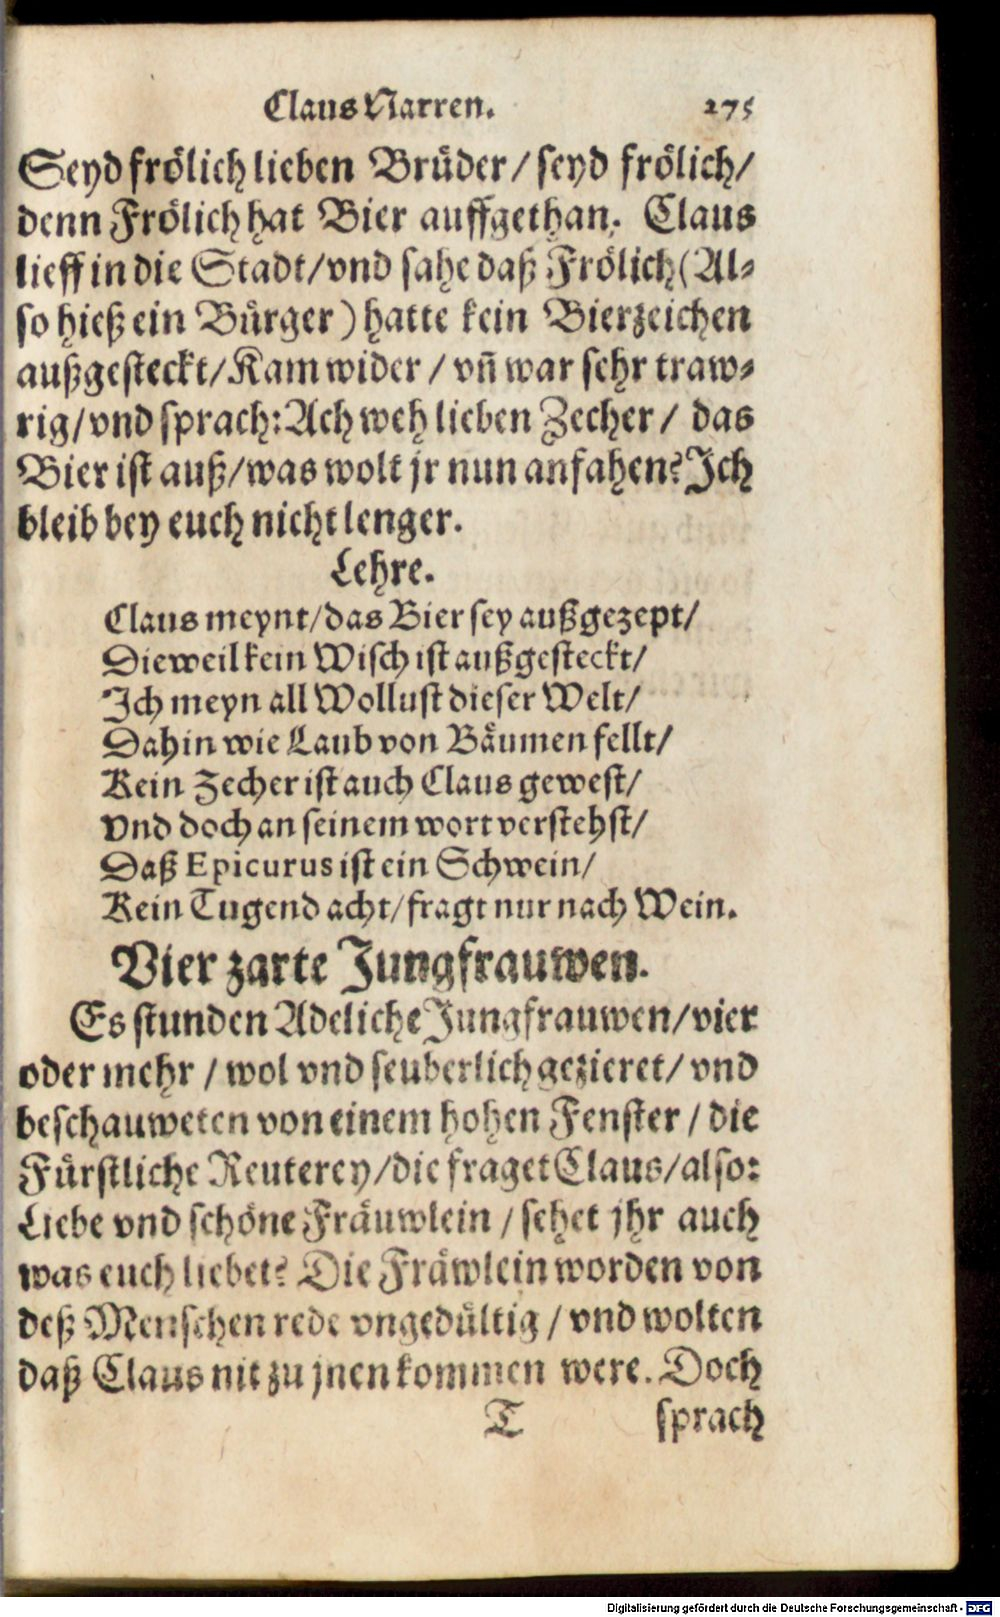 Claus Narren. 275
Seyd frölich lieben Brüder/ seyd frölich/
denn Frölich hat Bier auffgethan. Claus
lieff in die Stadt/ vnd sahe daß Frölich (Al-
so hieß ein Bürger) hatte kein Bierzeichen
außgesteckt/ Kam wider/ vñ war sehr traw-
rig/ vnd sprach: Ach weh lieben Zecher/ das
Bier ist auß/ was wolt jr nun anfahen? Ich
bleib bey euch nicht lenger.
Lehre.
Claus meynt/ das Bier sey außgezept/
Dieweil kein Wisch ist außgesteckt/
Ich meyn all Wollust dieser Welt/
Dahin wie Laub von Bäumen fellt/
Kein Zecher ist auch Claus gewest/
Vnd doch an seinem wort verstehst/
Daß Epicurus ist ein Schwein/
Kein Tugend acht/ fragt nur nach Wein.
Vier zarte Jungfrauwen.
Es stunden Adeliche Jungfrauwen/ vier
oder mehr/ wol vnd seuberlich gezieret/ vnd
beschauweten von einem hohen Fenster/ die
Fürstliche Reuterey/ die fraget Claus/ also:
Liebe vnd schöne Fräuwlein/ sehet jhr auch
was euch liebet? Die Fräwlein worden von
deß Menschen rede vngedültig/ vnd wolten
daß Claus nit zu jnen kommen were. Doch
T sprach
Digitalisierung gefördert durch die Deutsche Forschungsgemeinschaft - DFG